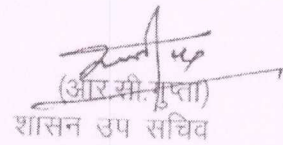 (आर.सी.गुप्ता)
शासन उप सचिव